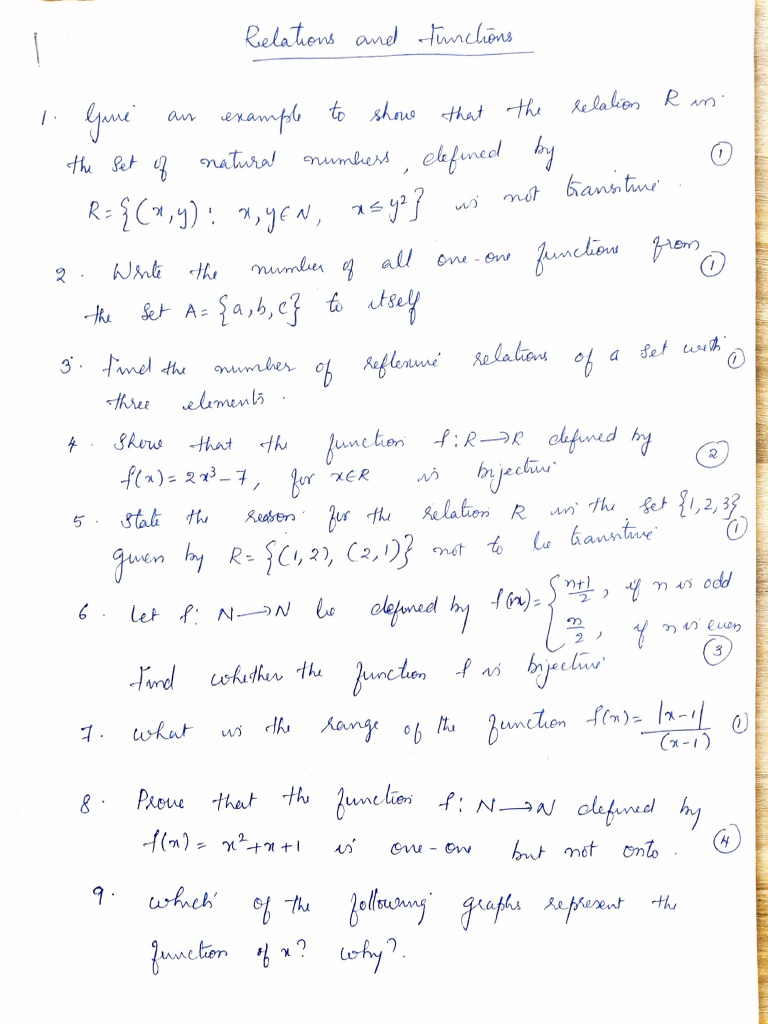 Relations and Functions
1. Give an example to show that the relation R in
the set of natural numbers, defined by ①
R = {(x,y): x,y∈N, x≤y²} is not transitive.
2. Write the number of all one-one functions from ①
the set A = {a,b,c} to itself
3. Find the number of reflexive relations of a set with ①
three elements.
4. Show that the function f:R→R defined by ②
f(x) = 2x³-7, for x∈R is bijective
5. State the reason for the relation R in the set {1,2,3}
given by R = {(1,2), (2,1)} not to be transitive ①
6. Let f: N→N be defined by f(n) = { n+1/2, if n is odd
n/2, if n is even
Find whether the function f is bijective ③
7. What is the range of the function f(x) = |x-1|/(x-1) ①
8. Prove that the function f: N→N defined by
f(x) = x²+x+1 is one-one but not onto. ④
9. Which of the following graphs represent the
function of x? Why?.